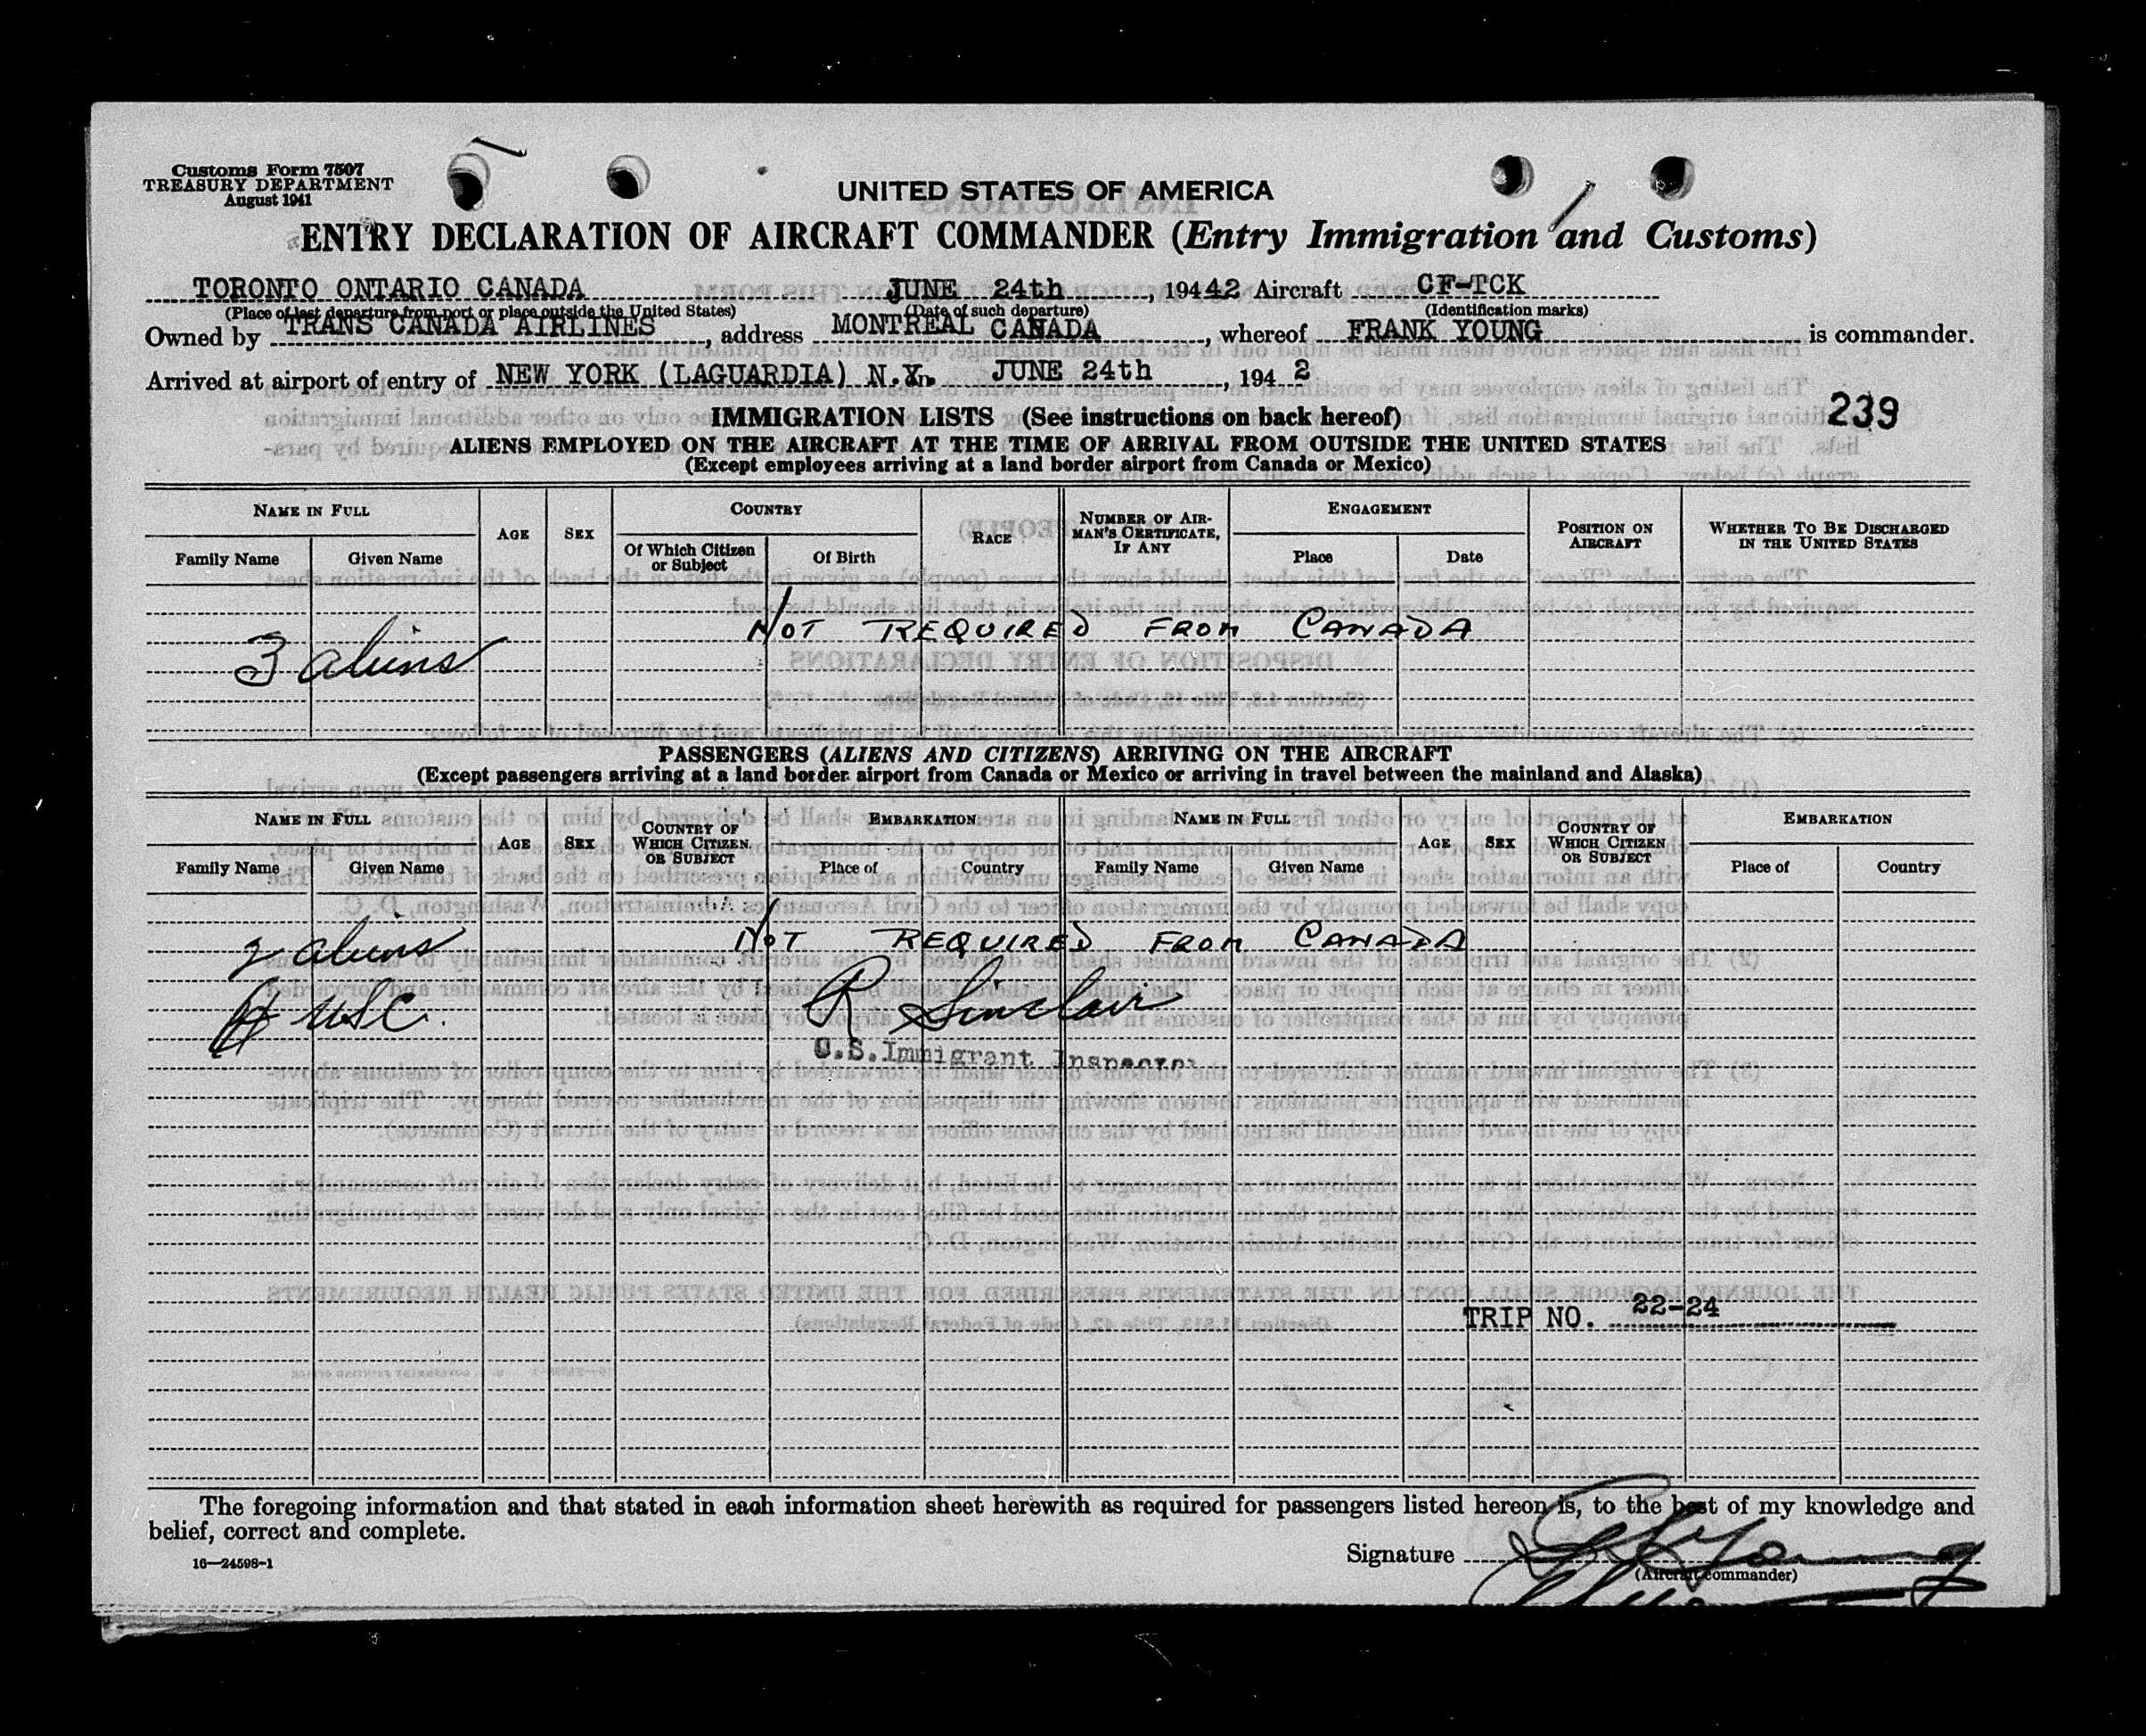 Customs Form 7507
TREASURY DEPARTMENT
August 1941
UNITED STATES OF AMERICA
ENTRY DECLARATION OF AIRCRAFT COMMANDER (Entry Immigration and Customs)
TORONTO ONTARIO CANADA JUNE 24th, 19442 Aircraft CF-TCK
(Place of last departure from port or place outside the United States) (Date of such departure) (Identification marks)
Owned by TRANS CANADA AIRLINES, address MONTREAL CANADA, whereof FRANK YOUNG is commander.
Arrived at airport of entry of NEW YORK (LAGUARDIA) N.Y. JUNE 24th, 194 2
IMMIGRATION LISTS (See instructions on back hereof) 239
ALIENS EMPLOYED ON THE AIRCRAFT AT THE TIME OF ARRIVAL FROM OUTSIDE THE UNITED STATES
(Except employees arriving at a land border airport from Canada or Mexico)
NAME IN FULL AGE SEX COUNTRY RACE NUMBER OF AIRMAN'S CERTIFICATE, IF ANY ENGAGEMENT POSITION ON AIRCRAFT WHETHER TO BE DISCHARGED IN THE UNITED STATES
Family Name Given Name Of Which Citizen or Subject Of Birth Place Date
NOT REQUIRED FROM CANADA
3 aliens
PASSENGERS (ALIENS AND CITIZENS) ARRIVING ON THE AIRCRAFT
(Except passengers arriving at a land border airport from Canada or Mexico or arriving in travel between the mainland and Alaska)
NAME IN FULL AGE SEX COUNTRY OF WHICH CITIZEN OR SUBJECT EMBARKATION NAME IN FULL AGE SEX COUNTRY OF WHICH CITIZEN OR SUBJECT EMBARKATION
Family Name Given Name Place of Country Family Name Given Name Place of Country
2 aliens NOT REQUIRED FROM CANADA
USC. R Sinclair
U.S. Immigrant Inspector
TRIP NO. 22-24
The foregoing information and that stated in each information sheet herewith as required for passengers listed hereon is, to the best of my knowledge and
belief, correct and complete.
16—24598-1
Signature Young
(Aircraft commander)